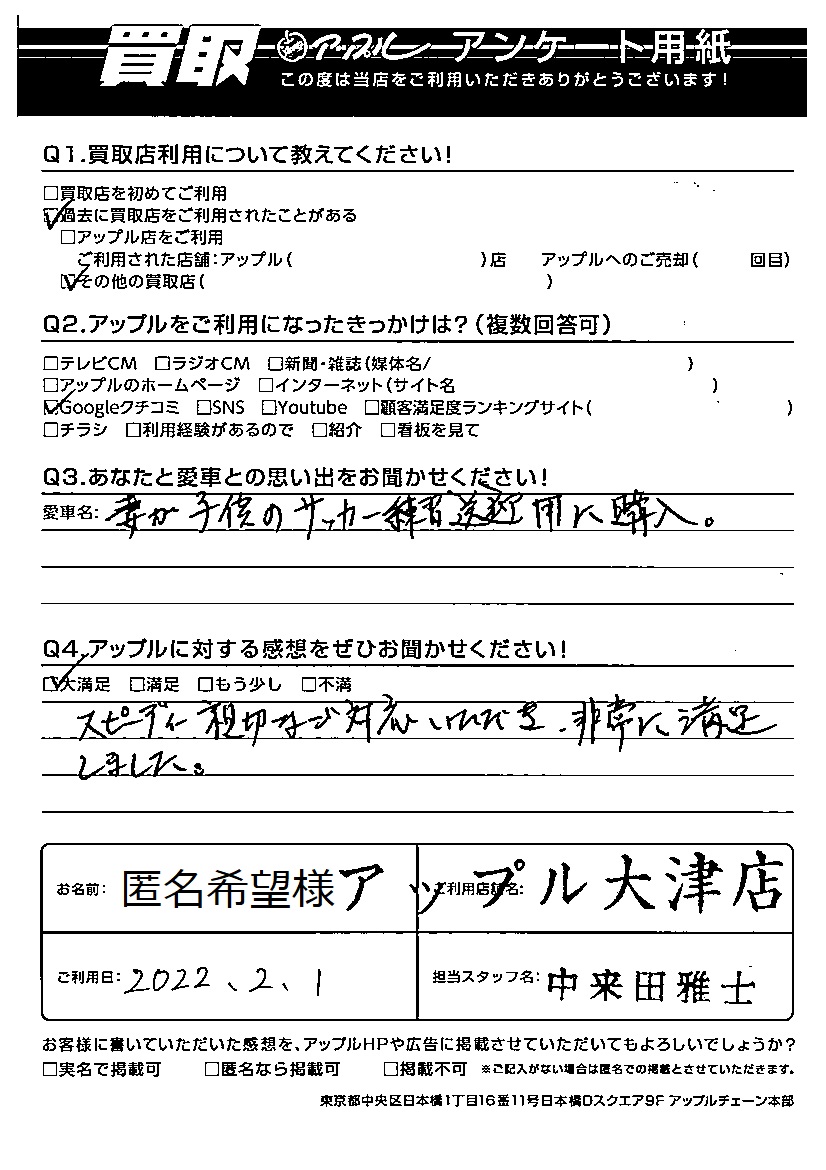 買取 アップル アンケート用紙
この度は当店をご利用いただきありがとうございます！
Q1.買取店利用について教えてください！
□買取店を初めてご利用
☑過去に買取店をご利用されたことがある
□アップル店をご利用
ご利用された店舗：アップル（　）店　アップルへのご売却（　回目）
☑その他の買取店（　）
Q2.アップルをご利用になったきっかけは？（複数回答可）
□テレビCM　□ラジオCM　□新聞・雑誌（媒体名/　）
□アップルのホームページ　□インターネット（サイト名　）
☑Googleクチコミ　□SNS　□Youtube　□顧客満足度ランキングサイト（　）
□チラシ　□利用経験があるので　□紹介　□看板を見て
Q3.あなたと愛車との思い出をお聞かせください！
愛車名：妻が子供のサッカー練習送迎用に購入。
Q4.アップルに対する感想をぜひお聞かせください！
☑大満足　□満足　□もう少し　□不満
スピーディー親切なご対応いただき、非常に満足
しました。
お名前：匿名希望様　ご利用店舗名：アップル大津店
ご利用日：2022、2、1　担当スタッフ名：中来田雅士
お客様に書いていただいた感想を、アップルHPや広告に掲載させていただいてもよろしいでしょうか？
□実名で掲載可　□匿名なら掲載可　□掲載不可　※ご記入がない場合は匿名での掲載とさせていただきます。
東京都中央区日本橋1丁目16番11号日本橋Dスクエア9F アップルチェーン本部